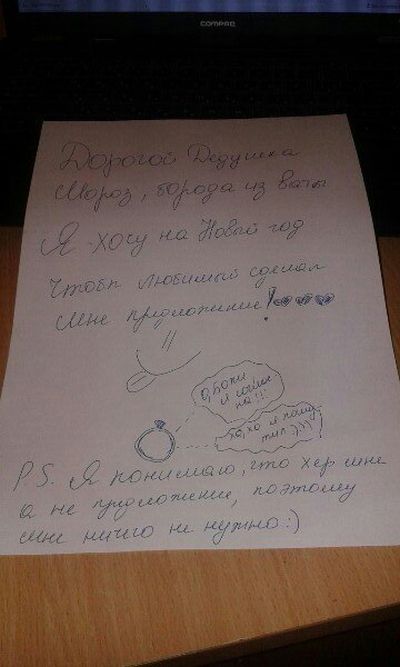 COMPAQ
Дорогой Дедушка
Мороз, борода из ваты
Я хочу на Новый год
Чтобы любимый сделал
мне предложение!
О, Боже
я соглас
на!!!
Ха, хо я пошу
тил :)))
P.S. Я понимаю, что хер мне
а не предложение, поэтому
мне ничего не нужно :)